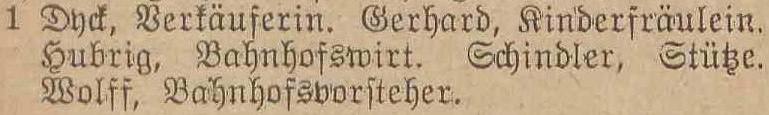 1 Dyck, Verkäuferin. Gerhard, Kinderfräulein.
Hubrig, Bahnhofswirt. Schindler, Stütze.
Wolff, Bahnhofsvorsteher.